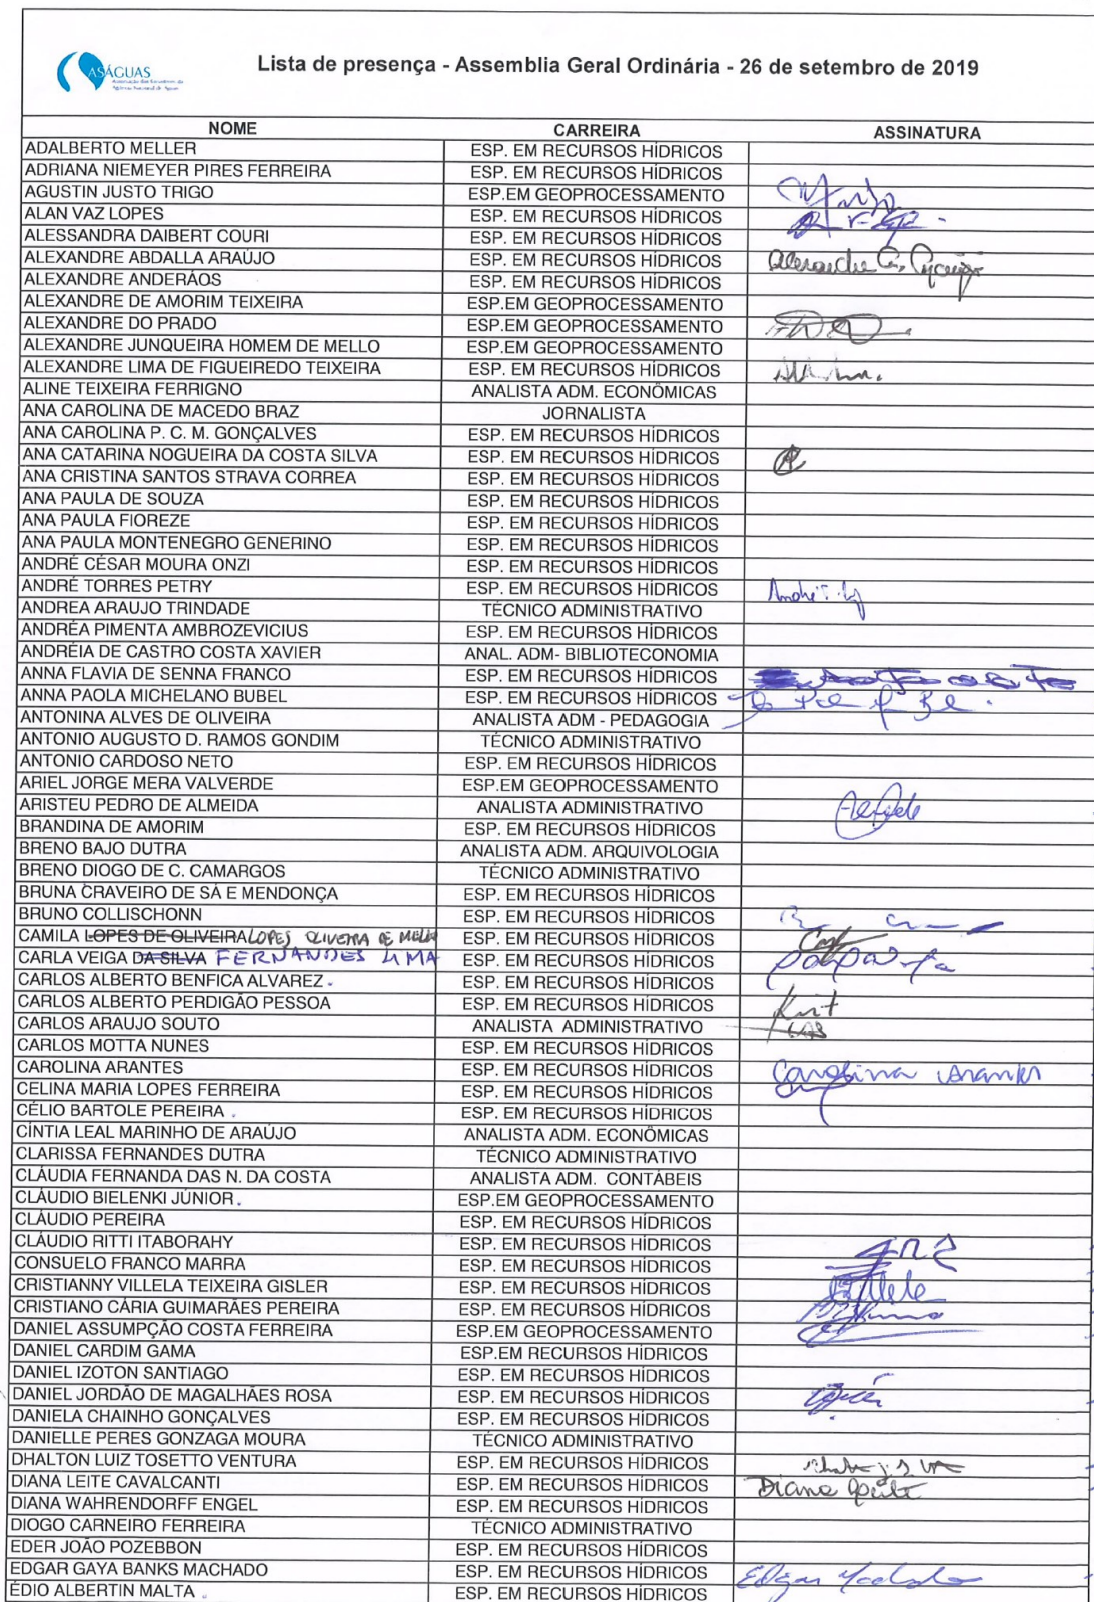 ASÁGUAS
Lista de presença - Assemblia Geral Ordinária - 26 de setembro de 2019
NOME CARREIRA ASSINATURA
ADALBERTO MELLER ESP. EM RECURSOS HÍDRICOS
ADRIANA NIEMEYER PIRES FERREIRA ESP. EM RECURSOS HÍDRICOS
AGUSTIN JUSTO TRIGO ESP.EM GEOPROCESSAMENTO
ALAN VAZ LOPES ESP. EM RECURSOS HÍDRICOS
ALESSANDRA DAIBERT COURI ESP. EM RECURSOS HÍDRICOS
ALEXANDRE ABDALLA ARAÚJO ESP. EM RECURSOS HÍDRICOS
ALEXANDRE ANDERÁOS ESP. EM RECURSOS HÍDRICOS
ALEXANDRE DE AMORIM TEIXEIRA ESP.EM GEOPROCESSAMENTO
ALEXANDRE DO PRADO ESP.EM GEOPROCESSAMENTO
ALEXANDRE JUNQUEIRA HOMEM DE MELLO ESP.EM GEOPROCESSAMENTO
ALEXANDRE LIMA DE FIGUEIREDO TEIXEIRA ESP. EM RECURSOS HÍDRICOS
ALINE TEIXEIRA FERRIGNO ANALISTA ADM. ECONÔMICAS
ANA CAROLINA DE MACEDO BRAZ JORNALISTA
ANA CAROLINA P. C. M. GONÇALVES ESP. EM RECURSOS HÍDRICOS
ANA CATARINA NOGUEIRA DA COSTA SILVA ESP. EM RECURSOS HÍDRICOS
ANA CRISTINA SANTOS STRAVA CORREA ESP. EM RECURSOS HÍDRICOS
ANA PAULA DE SOUZA ESP. EM RECURSOS HÍDRICOS
ANA PAULA FIOREZE ESP. EM RECURSOS HÍDRICOS
ANA PAULA MONTENEGRO GENERINO ESP. EM RECURSOS HÍDRICOS
ANDRÉ CÉSAR MOURA ONZI ESP. EM RECURSOS HÍDRICOS
ANDRÉ TORRES PETRY ESP. EM RECURSOS HÍDRICOS
ANDREA ARAUJO TRINDADE TÉCNICO ADMINISTRATIVO
ANDRÉA PIMENTA AMBROZEVICIUS ESP. EM RECURSOS HÍDRICOS
ANDRÉIA DE CASTRO COSTA XAVIER ANAL. ADM- BIBLIOTECONOMIA
ANNA FLAVIA DE SENNA FRANCO ESP. EM RECURSOS HÍDRICOS
ANNA PAOLA MICHELANO BUBEL ESP. EM RECURSOS HÍDRICOS
ANTONINA ALVES DE OLIVEIRA ANALISTA ADM - PEDAGOGIA
ANTONIO AUGUSTO D. RAMOS GONDIM TÉCNICO ADMINISTRATIVO
ANTONIO CARDOSO NETO ESP. EM RECURSOS HÍDRICOS
ARIEL JORGE MERA VALVERDE ESP.EM GEOPROCESSAMENTO
ARISTEU PEDRO DE ALMEIDA ANALISTA ADMINISTRATIVO
BRANDINA DE AMORIM ESP. EM RECURSOS HÍDRICOS
BRENO BAJO DUTRA ANALISTA ADM. ARQUIVOLOGIA
BRENO DIOGO DE C. CAMARGOS TÉCNICO ADMINISTRATIVO
BRUNA CRAVEIRO DE SÁ E MENDONÇA ESP. EM RECURSOS HÍDRICOS
BRUNO COLLISCHONN ESP. EM RECURSOS HÍDRICOS
CAMILA LOPES DE OLIVEIRA LOPES OLIVEIRA DE MELLO ESP. EM RECURSOS HÍDRICOS
CARLA VEIGA DA SILVA FERNANDES LIMA ESP. EM RECURSOS HÍDRICOS
CARLOS ALBERTO BENFICA ALVAREZ ESP. EM RECURSOS HÍDRICOS
CARLOS ALBERTO PERDIGÃO PESSOA ESP. EM RECURSOS HÍDRICOS
CARLOS ARAUJO SOUTO ANALISTA ADMINISTRATIVO
CARLOS MOTTA NUNES ESP. EM RECURSOS HÍDRICOS
CAROLINA ARANTES ESP. EM RECURSOS HÍDRICOS Carolina Arantes
CELINA MARIA LOPES FERREIRA ESP. EM RECURSOS HÍDRICOS
CÉLIO BARTOLE PEREIRA ESP. EM RECURSOS HÍDRICOS
CÍNTIA LEAL MARINHO DE ARAÚJO ANALISTA ADM. ECONÔMICAS
CLARISSA FERNANDES DUTRA TÉCNICO ADMINISTRATIVO
CLÁUDIA FERNANDA DAS N. DA COSTA ANALISTA ADM. CONTÁBEIS
CLÁUDIO BIELENKI JÚNIOR ESP.EM GEOPROCESSAMENTO
CLÁUDIO PEREIRA ESP. EM RECURSOS HÍDRICOS
CLÁUDIO RITTI ITABORAHY ESP. EM RECURSOS HÍDRICOS
CONSUELO FRANCO MARRA ESP. EM RECURSOS HÍDRICOS
CRISTIANNY VILLELA TEIXEIRA GISLER ESP. EM RECURSOS HÍDRICOS
CRISTIANO CÁRIA GUIMARÃES PEREIRA ESP. EM RECURSOS HÍDRICOS
DANIEL ASSUMPÇÃO COSTA FERREIRA ESP.EM GEOPROCESSAMENTO
DANIEL CARDIM GAMA ESP.EM RECURSOS HÍDRICOS
DANIEL IZOTON SANTIAGO ESP. EM RECURSOS HÍDRICOS
DANIEL JORDÃO DE MAGALHÃES ROSA ESP. EM RECURSOS HÍDRICOS
DANIELA CHAINHO GONÇALVES ESP. EM RECURSOS HÍDRICOS
DANIELLE PERES GONZAGA MOURA TÉCNICO ADMINISTRATIVO
DHALTON LUIZ TOSETTO VENTURA ESP. EM RECURSOS HÍDRICOS
DIANA LEITE CAVALCANTI ESP. EM RECURSOS HÍDRICOS Diana Leite
DIANA WAHRENDORFF ENGEL ESP. EM RECURSOS HÍDRICOS
DIOGO CARNEIRO FERREIRA TÉCNICO ADMINISTRATIVO
EDER JOÃO POZEBBON ESP. EM RECURSOS HÍDRICOS
EDGAR GAYA BANKS MACHADO ESP. EM RECURSOS HÍDRICOS Edgar Machado
ÉDIO ALBERTIN MALTA ESP. EM RECURSOS HÍDRICOS